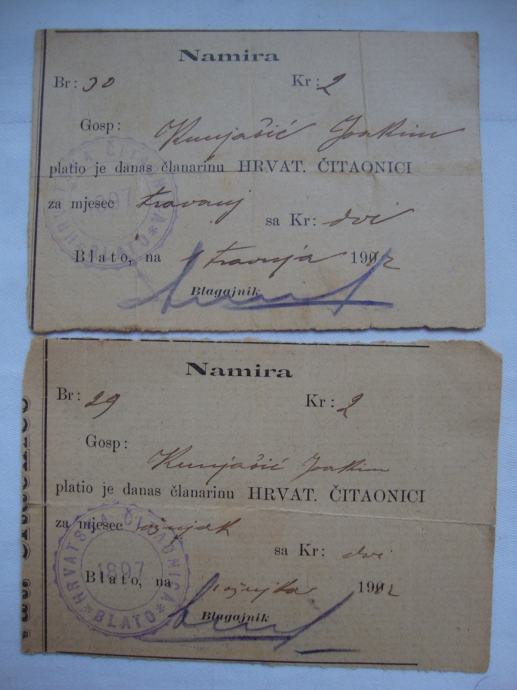 Namira
Br: 30 Kr: 2
Gosp: Kunjašić Joakim
platio je danas članarinu HRVAT. ČITAONICI
za mjesec travanj
sa Kr: dvi
Blato, na travnja 1902
Blagajnik
HRVATSKA ČITAONICA
1897
* BLATO *
Namira
Br: 29 Kr: 2
Gosp: Kunjašić Joakim
platio je danas članarinu HRVAT. ČITAONICI
za mjesec ožujak
sa Kr: dvi
Blato, na ožujka 1902
Blagajnik
HRVATSKA ČITAONICA
1897
* BLATO *